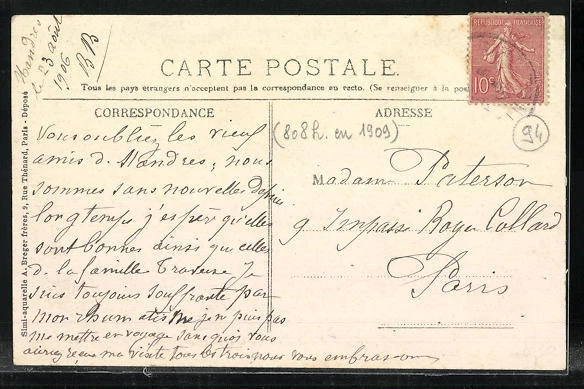 Mandres
le 23 août
1906
CARTE POSTALE
Tous les pays étrangers n'acceptent pas la correspondance au recto. (Se renseigner à la pos
REPUBLIQUE FRANÇAISE
10c
CORRESPONDANCE
ADRESSE
(808h. en 1909)
94
Simi-aquarelle A. Breger frères, 9, Rue Thénard, Paris - Déposé
Vous oubliez les vieux
amis de Mandres, nous
sommes sans nouvelles depuis
longtemps j'espère qu'elles
sont bonnes ainsi que celles
de la famille Je
suis toujours souffrante par
mon rhumatisme je ne puis pas
me mettre en voyage sans quoi vous
auriez reçu ma visite tous les trois nous vous embrassons
Madame Paterson
9 Impasse Royer Collard
Paris